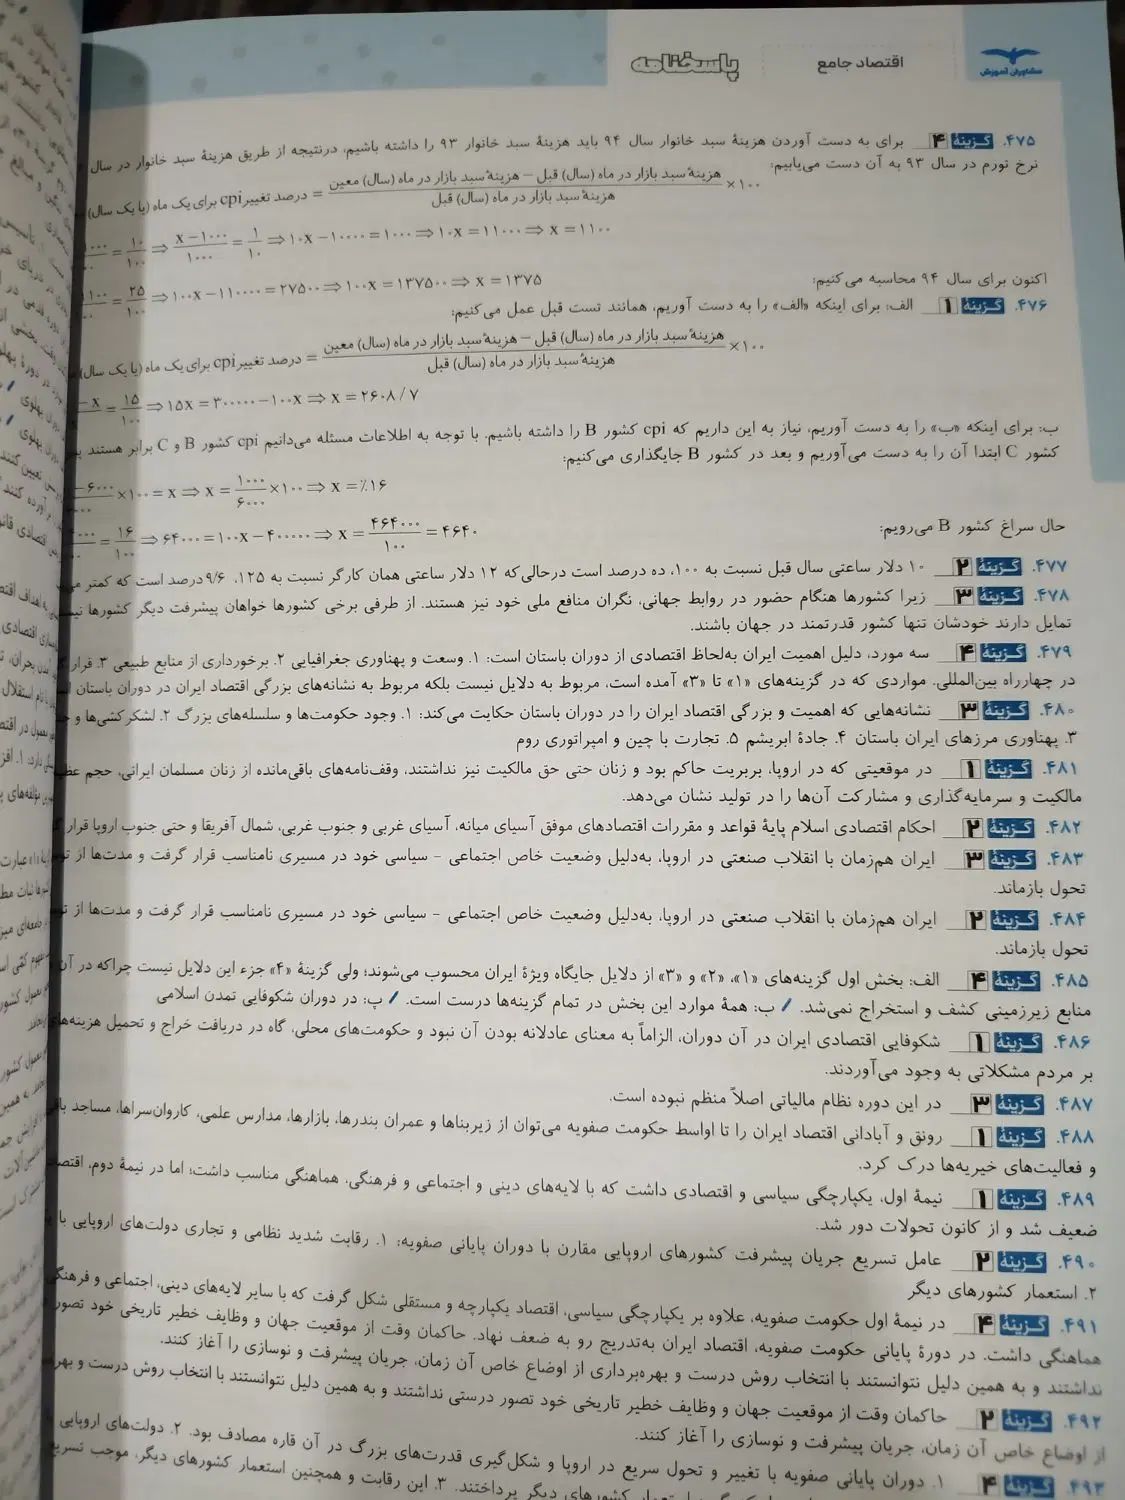 مشاوران آموزش
اقتصاد جامع
پاسخنامه
۴۷۵. گزینهٔ ۴ برای به دست آوردن هزینهٔ سبد خانوار سال ۹۴ باید هزینهٔ سبد خانوار ۹۳ را داشته باشیم، درنتیجه از طریق هزینهٔ سبد خانوار در سال
نرخ تورم در سال ۹۳ به آن دست می‌یابیم:
درصد تغییر cpi برای یک ماه (یا یک سال) = هزینهٔ سبد بازار در ماه (سال) قبل − هزینهٔ سبد بازار در ماه (سال) معین / هزینهٔ سبد بازار در ماه (سال) قبل ×۱۰۰
= ۱۰/۱۰۰ ⇒ x−۱۰۰۰/۱۰۰۰ = ۱/۱۰ ⇒ ۱۰x−۱۰۰۰۰=۱۰۰۰ ⇒ ۱۰x=۱۱۰۰۰ ⇒ x=۱۱۰۰
اکنون برای سال ۹۴ محاسبه می‌کنیم:
= ۲۵/۱۰۰ ⇒ ۱۰۰x−۱۱۰۰۰۰=۲۷۵۰۰ ⇒ ۱۰۰x=۱۳۷۵۰۰ ⇒ x=۱۳۷۵
۴۷۶. گزینهٔ ۱ الف: برای اینکه «الف» را به دست آوریم، همانند تست قبل عمل می‌کنیم:
درصد تغییر cpi برای یک ماه (یا یک سال) = هزینهٔ سبد بازار در ماه (سال) قبل − هزینهٔ سبد بازار در ماه (سال) معین / هزینهٔ سبد بازار در ماه (سال) قبل ×۱۰۰
= ۱۵/۱۰۰ ⇒ ۱۵x=۳۰۰۰۰۰−۱۰۰x ⇒ x=۲۶۰۸/۷
ب: برای اینکه «ب» را به دست آوریم، نیاز به این داریم که cpi کشور B را داشته باشیم. با توجه به اطلاعات مسئله می‌دانیم cpi کشور B و C برابر هستند
کشور C ابتدا آن را به دست می‌آوریم و بعد در کشور B جایگذاری می‌کنیم:
×۱۰۰=x ⇒ x= ۱۰۰۰/۶۰۰۰ ×۱۰۰ ⇒ x=٪۱۶
حال سراغ کشور B می‌رویم:
= ۱۶/۱۰۰ ⇒ ۶۴۰۰۰=۱۰۰x−۴۰۰۰۰۰ ⇒ x= ۴۶۴۰۰۰/۱۰۰ =۴۶۴۰
۴۷۷. گزینهٔ ۲ ۱۰ دلار ساعتی سال قبل نسبت به ۱۰۰، ده درصد است درحالی‌که ۱۲ دلار ساعتی همان کارگر نسبت به ۱۲۵، ۹/۶ درصد است که کمتر
۴۷۸. گزینهٔ ۳ زیرا کشورها هنگام حضور در روابط جهانی، نگران منافع ملی خود نیز هستند. از طرفی برخی کشورها خواهان پیشرفت دیگر کشورها
تمایل دارند خودشان تنها کشور قدرتمند در جهان باشند.
۴۷۹. گزینهٔ ۴ سه مورد، دلیل اهمیت ایران به‌لحاظ اقتصادی از دوران باستان است: ۱. وسعت و پهناوری جغرافیایی ۲. برخورداری از منابع طبیعی ۳. قرار
در چهارراه بین‌المللی. مواردی که در گزینه‌های «۱» تا «۳» آمده است، مربوط به دلایل نیست بلکه مربوط به نشانه‌های بزرگی اقتصاد ایران در دوران باستان
۴۸۰. گزینهٔ ۳ نشانه‌هایی که اهمیت و بزرگی اقتصاد ایران را در دوران باستان حکایت می‌کند: ۱. وجود حکومت‌ها و سلسله‌های بزرگ ۲. لشکرکشی‌ها و
۳. پهناوری مرزهای ایران باستان ۴. جادهٔ ابریشم ۵. تجارت با چین و امپراتوری روم
۴۸۱. گزینهٔ ۱ در موقعیتی که در اروپا، بربریت حاکم بود و زنان حتی حق مالکیت نیز نداشتند، وقف‌نامه‌های باقی‌مانده از زنان مسلمان ایرانی، حجم
مالکیت و سرمایه‌گذاری و مشارکت آن‌ها را در تولید نشان می‌دهد.
۴۸۲. گزینهٔ ۲ احکام اقتصادی اسلام پایهٔ قواعد و مقررات اقتصادهای موفق آسیای میانه، آسیای غربی و جنوب غربی، شمال آفریقا و حتی جنوب اروپا قرار
۴۸۳. گزینهٔ ۳ ایران هم‌زمان با انقلاب صنعتی در اروپا، به‌دلیل وضعیت خاص اجتماعی - سیاسی خود در مسیری نامناسب قرار گرفت و مدت‌ها از
تحول بازماند.
۴۸۴. گزینهٔ ۲ ایران هم‌زمان با انقلاب صنعتی در اروپا، به‌دلیل وضعیت خاص اجتماعی - سیاسی خود در مسیری نامناسب قرار گرفت و مدت‌ها از
تحول بازماند.
۴۸۵. گزینهٔ ۴ الف: بخش اول گزینه‌های «۱»، «۲» و «۳» از دلایل جایگاه ویژهٔ ایران محسوب می‌شوند؛ ولی گزینهٔ «۴» جزء این دلایل نیست چراکه در آن
منابع زیرزمینی کشف و استخراج نمی‌شد. / ب: همهٔ موارد این بخش در تمام گزینه‌ها درست است. / پ: در دوران شکوفایی تمدن اسلامی
۴۸۶. گزینهٔ ۱ شکوفایی اقتصادی ایران در آن دوران، الزاماً به معنای عادلانه بودن آن نبود و حکومت‌های محلی، گاه در دریافت خراج و تحمیل هزینه‌های
بر مردم مشکلاتی به وجود می‌آوردند.
۴۸۷. گزینهٔ ۳ در این دوره نظام مالیاتی اصلاً منظم نبوده است.
۴۸۸. گزینهٔ ۱ رونق و آبادانی اقتصاد ایران را تا اواسط حکومت صفویه می‌توان از زیربناها و عمران بندرها، بازارها، مدارس علمی، کاروان‌سراها، مساجد
و فعالیت‌های خیریه‌ها درک کرد.
۴۸۹. گزینهٔ ۱ نیمهٔ اول، یکپارچگی سیاسی و اقتصادی داشت که با لایه‌های دینی و اجتماعی و فرهنگی، هماهنگی مناسب داشت؛ اما در نیمهٔ دوم، اقتصاد
ضعیف شد و از کانون تحولات دور شد.
۴۹۰. گزینهٔ ۲ عامل تسریع جریان پیشرفت کشورهای اروپایی مقارن با دوران پایانی صفویه: ۱. رقابت شدید نظامی و تجاری دولت‌های اروپایی با
۲. استعمار کشورهای دیگر
۴۹۱. گزینهٔ ۴ در نیمهٔ اول حکومت صفویه، علاوه بر یکپارچگی سیاسی، اقتصاد یکپارچه و مستقلی شکل گرفت که با سایر لایه‌های دینی، اجتماعی و فرهنگی
هماهنگی داشت. در دورهٔ پایانی حکومت صفویه، اقتصاد ایران به‌تدریج رو به ضعف نهاد. حاکمان وقت از موقعیت جهان و وظایف خطیر تاریخی خود تصور
نداشتند و به همین دلیل نتوانستند با انتخاب روش درست و بهره‌برداری از اوضاع خاص آن زمان، جریان پیشرفت و نوسازی را آغاز کنند.
۴۹۲. گزینهٔ ۲ حاکمان وقت از موقعیت جهان و وظایف خطیر تاریخی خود تصور درستی نداشتند و به همین دلیل نتوانستند با انتخاب روش درست و
از اوضاع خاص آن زمان، جریان پیشرفت و نوسازی را آغاز کنند.
۴۹۳. گزینهٔ ۴ ۱. دوران پایانی صفویه با تغییر و تحول سریع در اروپا و شکل‌گیری قدرت‌های بزرگ در آن قاره مصادف بود. ۲. دولت‌های اروپایی
استعمار کشورهای دیگر پرداختند. ۳. این رقابت و همچنین استعمار کشورهای دیگر، موجب تسریع